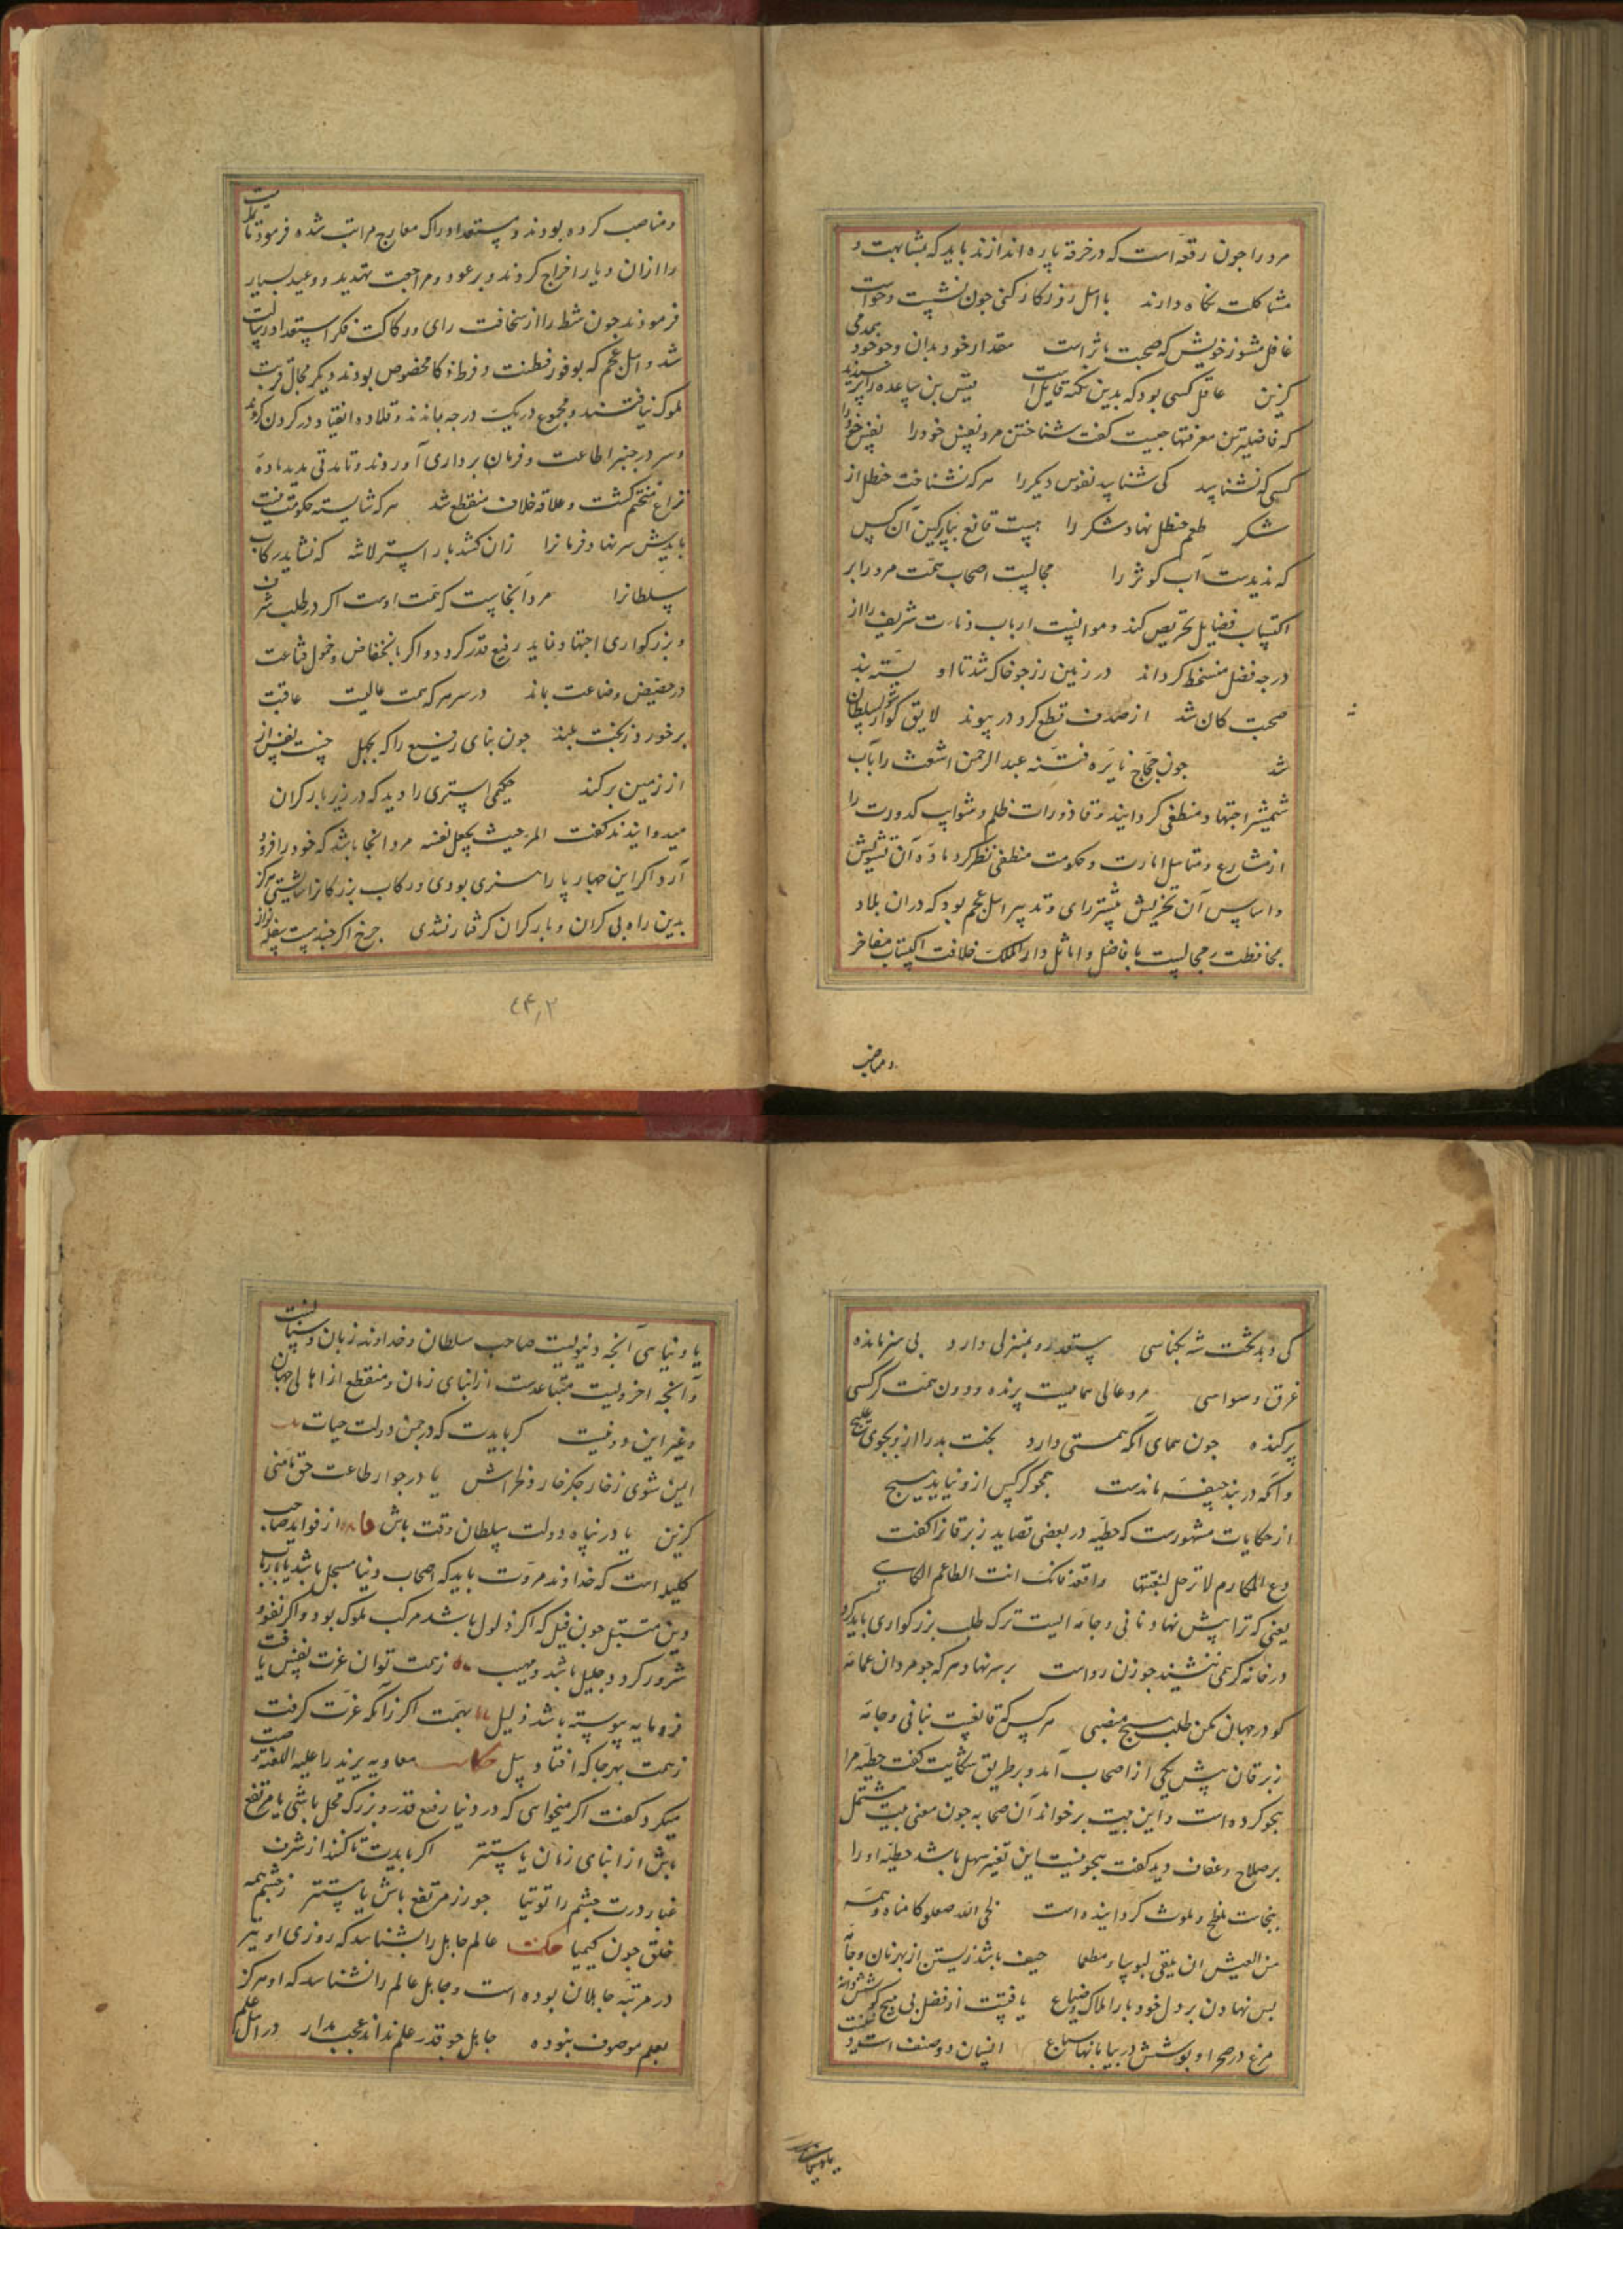 مرد را جون رقعه است که در خرقه پاره اندازند باید که بمشابهت و
مشاکلت نکاه دارند با اهل روزکار کنی جون نشست و خواست
غافل مشو ز خویش که صحبت مؤثر است مقدار خود بدان و جو خود همدمی
کزین عاقل کسی بود که بدین نکته قایل است قیس بن ساعده را پرسیدند
که فاضلترین معرفتها جیست کفت شناختن مرد نفس خود را نفس خود را
کسی که نشناسد کی شناسد نفوس دیکر را هرکه نشناخت حنظل از
شکر طعم حنظل نهاد شکر را هست قانع بپارکین آن کس
که ندیدست آب کوثر را مجالست اصحاب همت مرد را بر
اکتساب فضایل تحریص کند و موانست ارباب دنائت شریف را از
درجه فضل منحط کرداند در زمین زر جو خاک شد تا او بسته بند
صحبت کان شد از صدف قطع کرد در پیوند لایق کوشوار سلطان
شد جون حجاج نایره فتنه عبد الرحمن اشعث را بآب
شمشیر اجتهاد منطفی کردانید و قاذورات ظلم و شوایب کدورت را
از مشارع و مناهل امارت و حکومت منطفی نظر کرد ماده آن تشویش
و اساس آن تحریش بیشتر رای و تدبیر اهل عجم بود که دران بلاد
بمحافظت و مجالست با افاضل و اماثل دار الملک خلافت اکتساب مفاخر
و مناصب
و مناصب کرده بودند و مستعد ادراک معارج مراتب شده فرمود تا
را ازان دیار اخراج کردند و بر عود و مراجعت تهدید و وعید بسیار
فرمودند جون شط را از سخافت رای و رکاکت فکر استعداد رسالت
شد و اهل عجم که بوفور فطنت و فرط ذکا مخصوص بودند دیکر مجال قربت
ملوک نیافتند و مجموع در یک درجه بماندند و قلاده انقیاد در کردن کردند
و سر در جنبر اطاعت و فرمان برداری آوردند و تا مدتی مدید ماده
نزاع منختم کشت و علاقه خلاف منقطع شد هرکه شایسته حکومت نیست
بایدش سر نهاد فرمانرا زان کشد بار استر لاشه که نشاید رکاب
سلطانرا مرد آنجاست که همت اوست اکر در طلب شرف
و بزرکواری اجتهاد نماید رفیع قدر کردد و اکر بانخفاض و خمول قناعت
در حضیض وضاعت بماند در سر هرکه همت عالیست عاقبت
برخورد ز بخت بلند جون بنای رفیع را که بجهل جست نفس از
از زمین برکند حکیمی استری را دید که در زیر بار کران
میدوانیدند کفت المرء حیث یجعل نفسه مرد آنجا باشد که خود را فرود
آرد اکر این جهارپا را هنری بودی و رکاب بزرکانرا شایستی هرکز
بدین راه بی کران و بار کران کرفتار نشدی جرخ اکر جندست سفله نواز
کی دهد تخت شه بکناسی مستعد رو بمنزلی دارد بی هنر مانده
غرق وسواسی مرد عالی هماییست پرنده و دون همت کرکسی
پرکنده جون همای آنکه همتی دارد بخت بد را ازو بجوی هیج
وانکه در بند جیفه ماندست همجو کرکس ازو نیاید هیج
از حکایات مشهورست که حطیه در بعضی قصاید زبرقانرا کفت
دع المکارم لا ترحل لبغیتها واقعد فانک انت الطاعم الکاسی
یعنی که ترا پیش نهاد نانی و جامه ایست ترک طلب بزرکواری باید کرد
در خانه کر همی ننشیند جو زن رواست بر سر نهاد هرکه جو مردان عمامه
کو در جهان مکن طلب هیج منصبی هر کس که قانعست بنانی و جامه
زبرقان پیش یکی از اصحاب آمد و بر طریق شکایت کفت حطیه مرا
هجو کرده است و این بیت برخواند آن صحابه جون معنی بیت مشتمل
بر صلاح و عفاف دید کفت هجو نیست این تغیر سهل باشد حطیه او را
بنجاست ملطخ و ملوث کردانیده است لحی الله صعلوکا مناه و همه
من العیش ان یلقی لبوسا و مطعما حیف باشد زیستن از بهر نان و جامه
بس نهادن بر دل خود بار املاک و ضیاع یافتست از فضل بی
مرغ در صحرا و بوشش در بیابانها سباع انسان دو صنف است
یا دنیایی آنجه دنیویست صاحب سلطان و خداوند زبان و سنانست
و آنجه اخرویست متباعدست از ابنای زمان و منقطع از اهالی جهان
و غیر این دو نیست کر بایدت که در جمن دولت حیات
ایمن شوی ز خار جکرخار دلخراش یا در جوار طاعت حق مأمنی
کزین یا در پناه دولت سلطان وقت باش از فواید صاحب
کلیله است که خداوند مروت باید که اصحاب دنیا مبجل باشد یا با ارباب
دین متبتل جون فیل که اکر ذلول باشد مرکب ملوک بود و اکر نفور و
شرور کردد جلیل باشد و مهیب ز همت توان عزت نفس یافت
فرومایه پیوسته باشد ذلیل بهمت اکر زانکه عزت کرفت
ز همت بهر جا که افتاد پیل حکایت معاویه یزید را علیه اللعنه وصیت
میکرد کفت اکر میخواهی که در دنیا رفیع قدر و بزرک محل باشی یا مرتفع
باش از ابنای زمان یا مستتر اکر بایدت تا کنند از شرف
غبار درت جشم را توتیا جو زر مرتفع باش یا مستتر ز جشم همه
خلق جون کیمیا حکمت عالم جاهل را بشناسد که روزی او نیز
در مرتبه جاهلان بوده است و جاهل عالم را نشناسد که او هرکز
بعلم موصوف نبوده جاهل جو قدر علم نداند عجب مدار در اهل علم